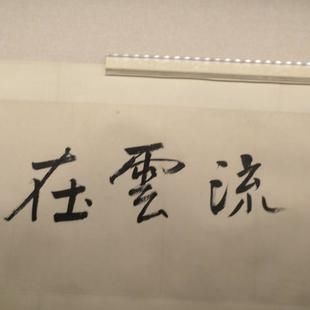 流雲在